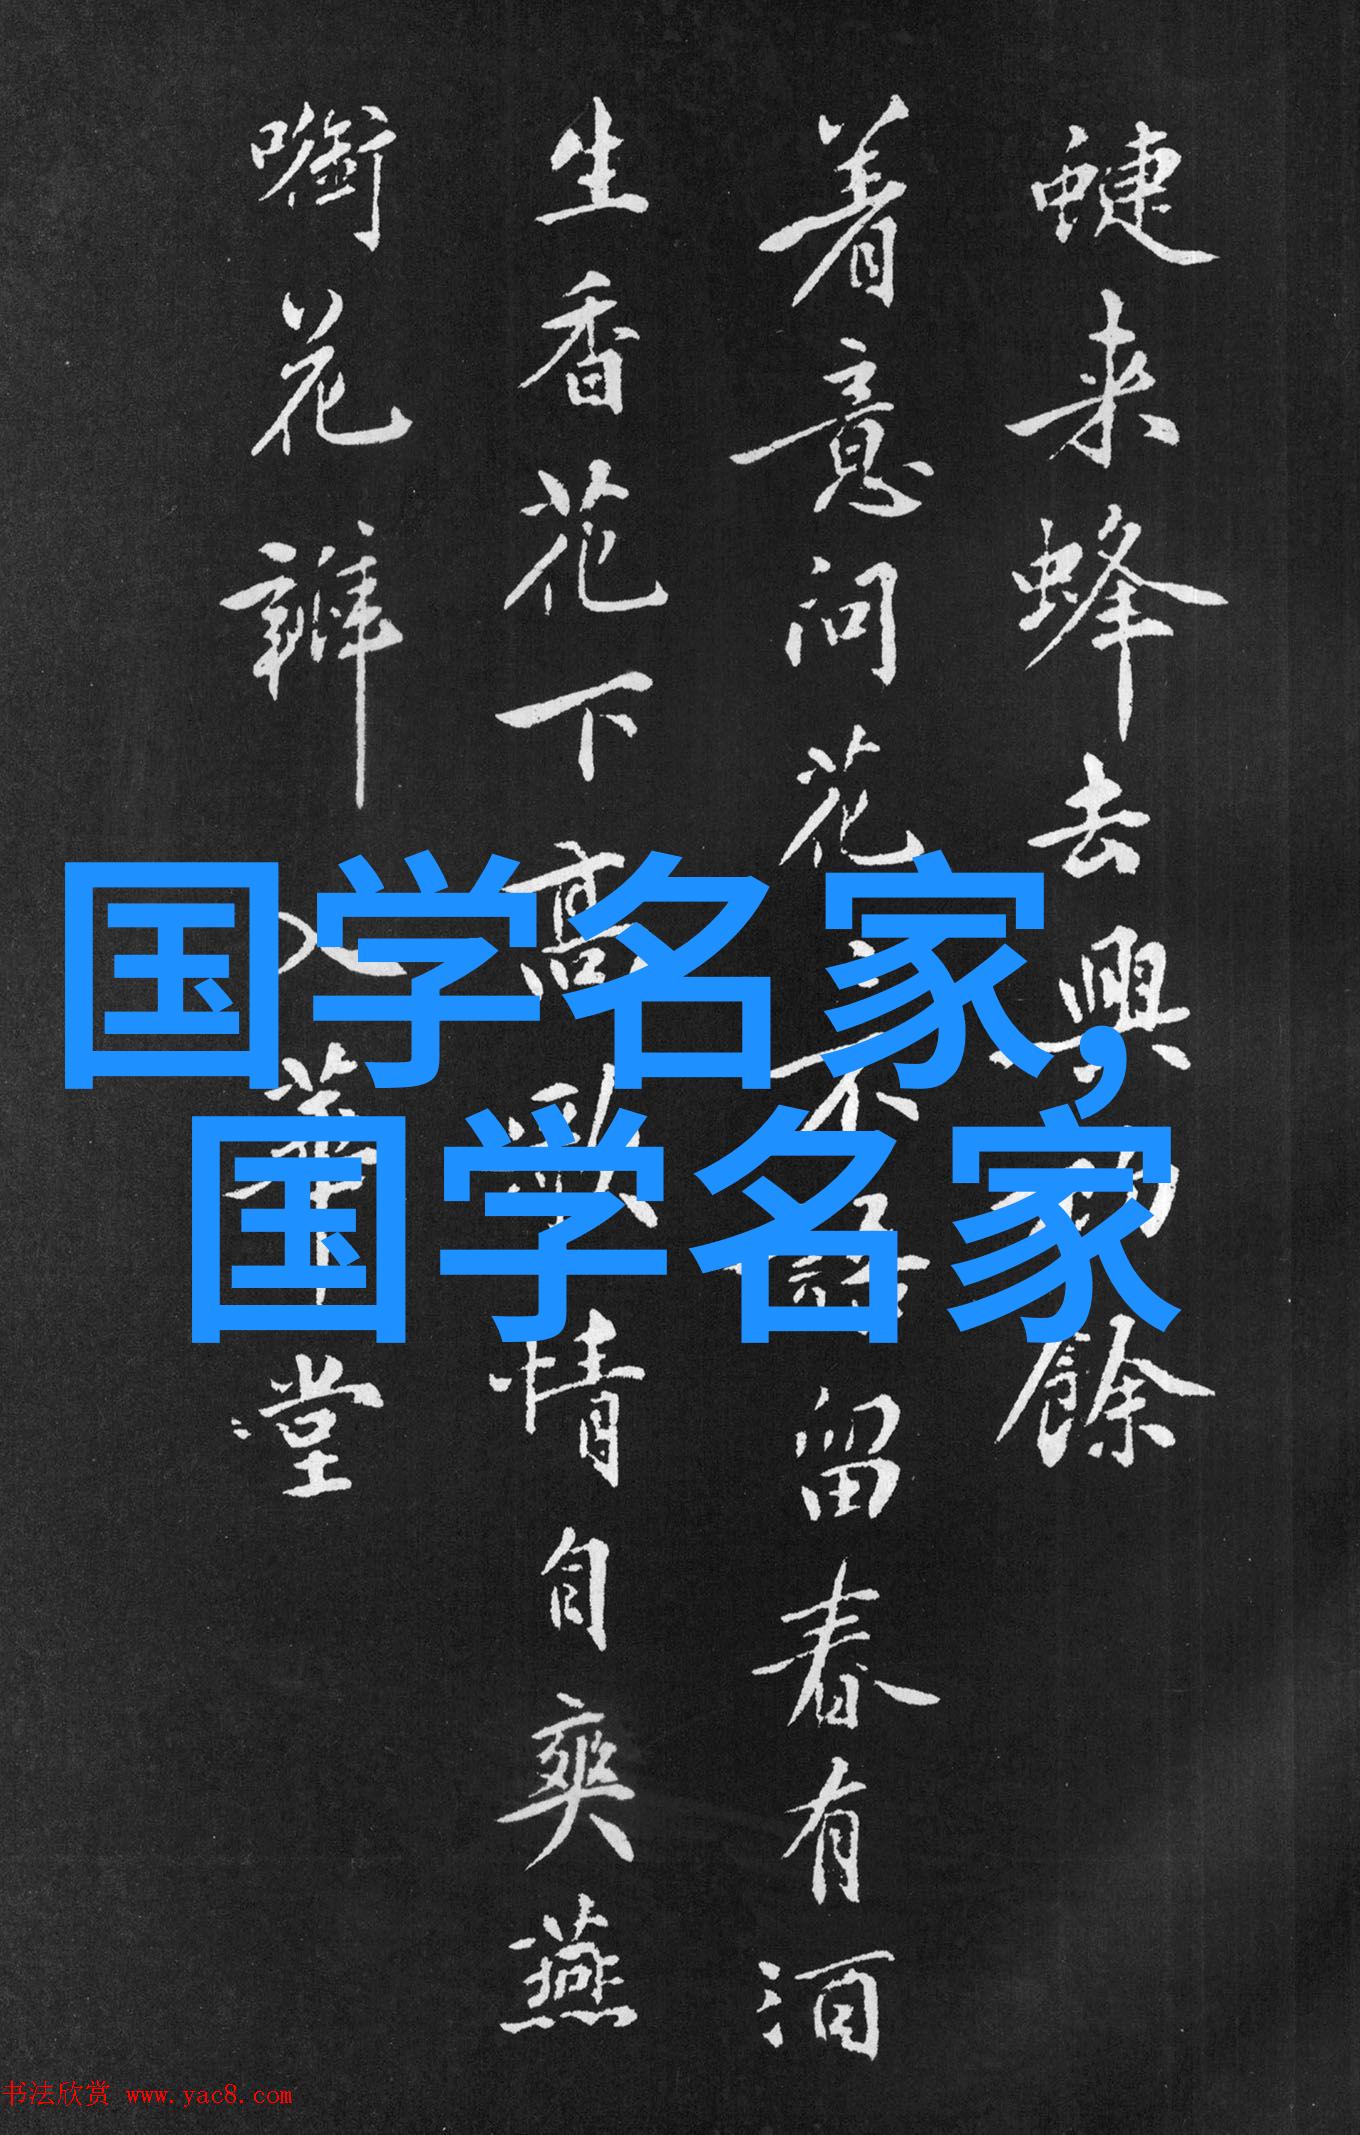 蜨来蜂去興餘
着意问花〻不語留春有酒
生香花下高歌情自爽燕
㘅花瓣入華堂
国学名家,
国学名家
书法欣赏 www.yac8.com